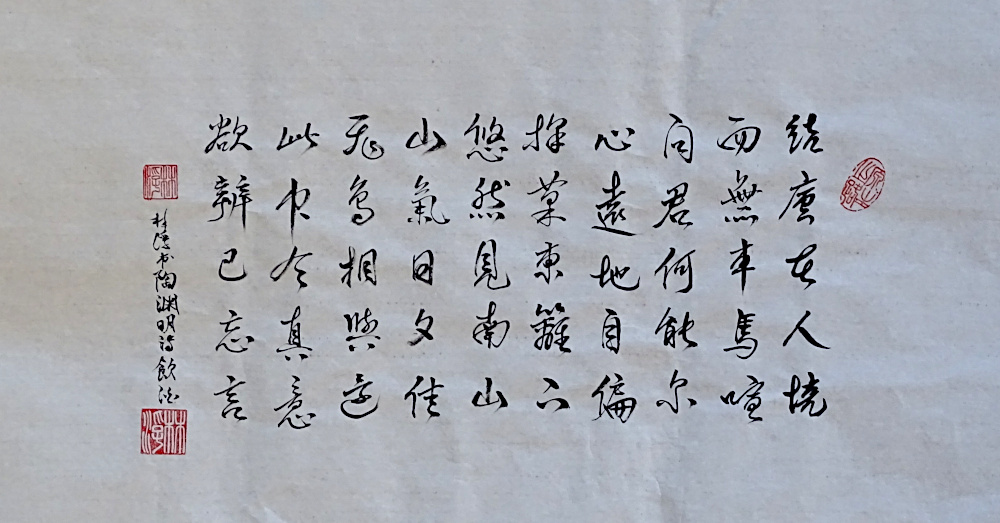 結廬在人境
而無車馬喧
问君何能尔
心遠地自偏
採菊東籬下
悠然見南山
山氣日夕佳
飛鳥相與還
此中有真意
欲辨已忘言
书陶渊明詩飲酒